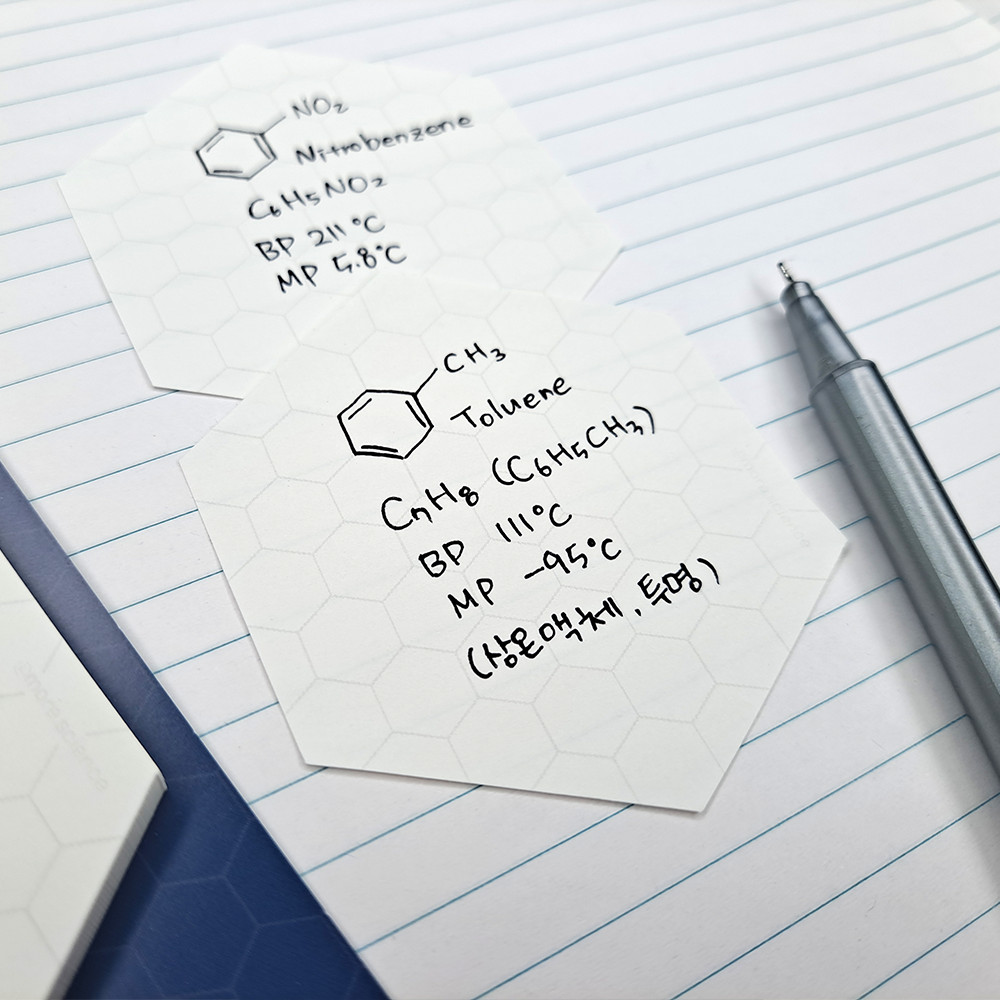 NO2
Nitrobenzene
C6H5NO2
BP 211°C
MP 5.8°C
CH3
Toluene
C7H8 (C6H5CH3)
BP 111°C
MP -95°C
(상온액체, 투명)